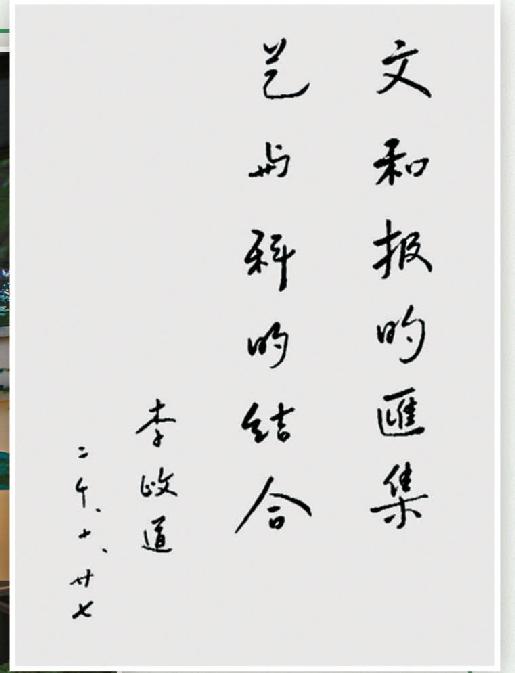 文和报的匯集
艺与科的结合
李政道
二千、十、廿七